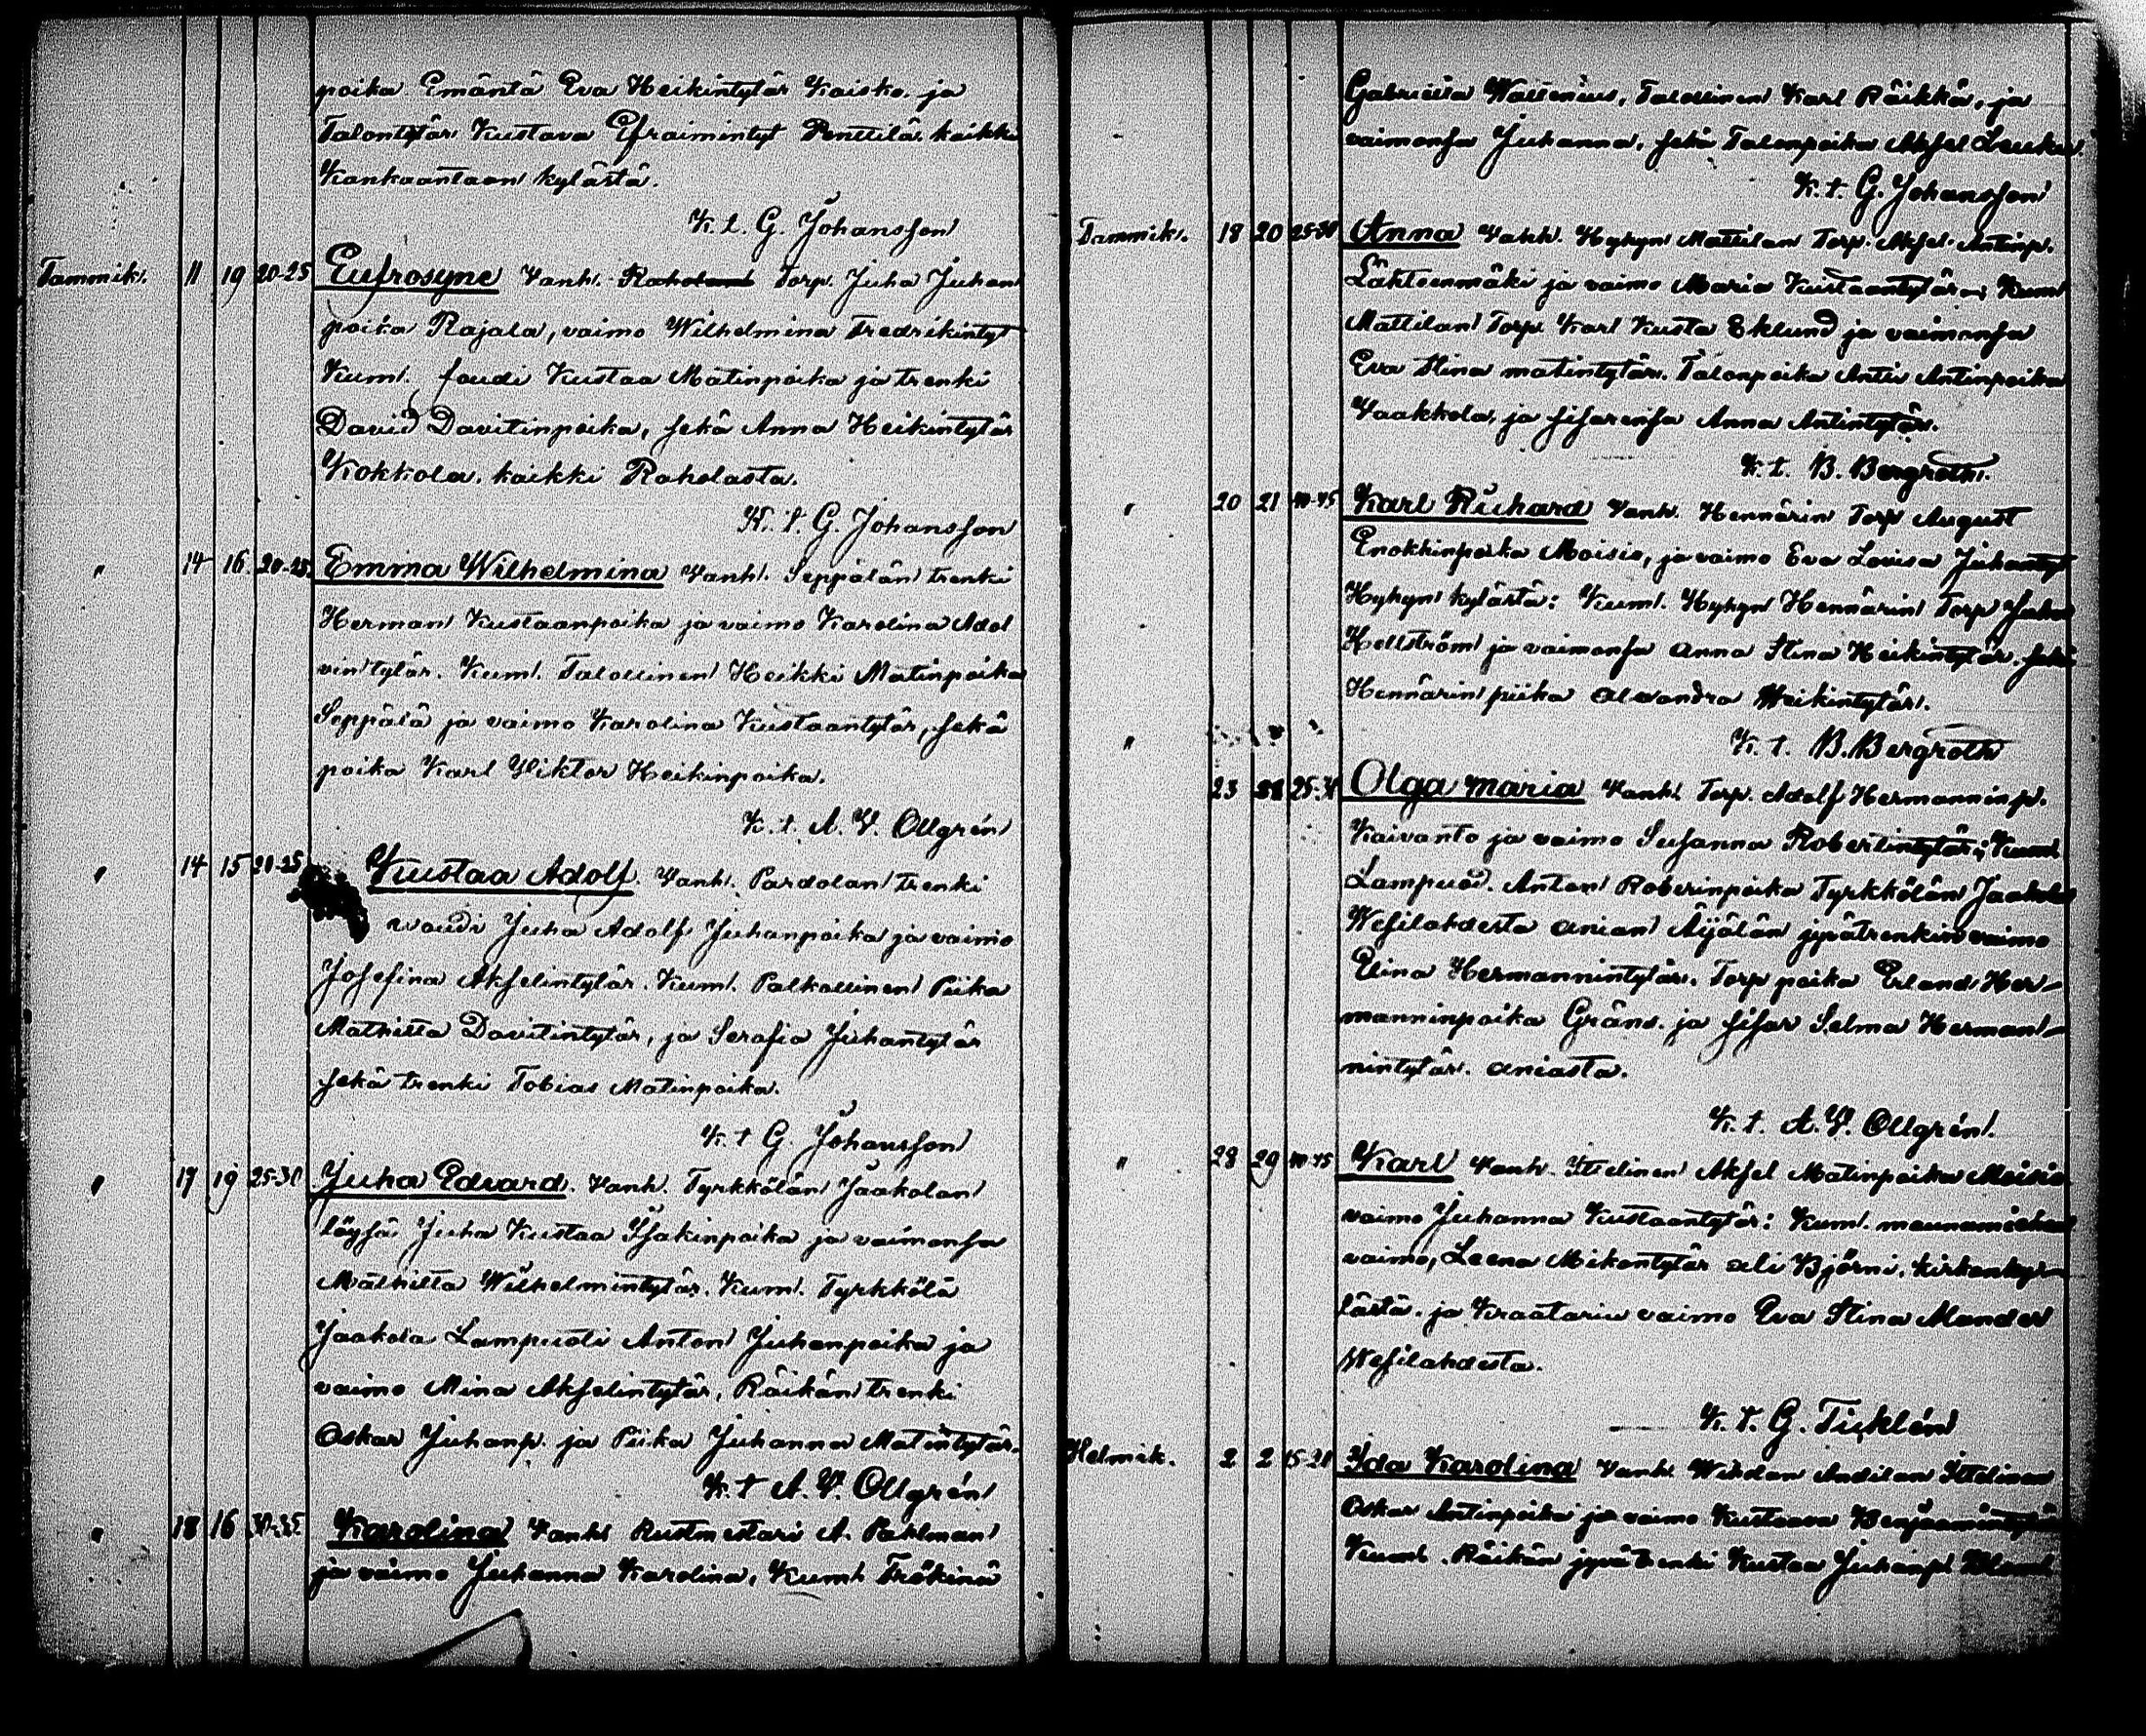 poika. Emäntä Eva Heikintytär Kaisko. ja
Talontytär Kustava Efraimintyt Penttilä. kaikki
Kankaantaan kylästä.
K. t. G. Johansson
Tammik. 11 19 20-25 Eufrosyne Vanh. Torp. Juha Juhan
poika Rajala, vaimo Wilhelmina Fredrikintyt
Kum. foudi Kustaa Matinpoika ja trenki
David Davitinpoika, sekä Anna Heikintytär
Kokkola. kaikki Raholasta.
K. t. G. Johansson
" 14 16 20-25 Emma Wilhelmina Vanh. Seppälän trenki
Herman Kustaanpoika ja vaimo Karolina Adol
vintytär. Kum. Talollinen Heikki Matinpoika
Seppälä ja vaimo Karolina Kustaantytär, sekä
poika Karl Viktor Heikinpoika.
K. t. A. V. Ollgrén
" 14 15 20-25 Kustaa Adolf. Vanh. Pardolan trenki
woudi Juha Adolf Juhanpoika ja vaimo
Josefina Akselintytär. Kum. Palkollinen Piika
Mathilta Davitintytär, ja Serafia Juhantytär
sekä trenki Tobias Matinpoika.
K. t G. Johansson
" 17 19 25-30 Juha Edvard. Vanh. Tyrkkölän Jaakolan
löysä Juha Kustaa Isakinpoika ja vaimonsa
Mathilta Wilhelmintytär. Kum. Tyrkkölä
Jaakola Lampuoti Anton Juhanpoika ja
vaimo Mina Akselintytär, Räikän trenki
Oskar Juhanp. ja Piika Juhanna Matintytär.
K. t A. V. Ollgrén
" 18 16 30-35 Karolina Vanh Rustmestari A. Pahlman
ja vaimo Juhanna Karolina, Kum. Frökinä
Gabriella Wallenius, Talollinen Karl Räikkä, ja
vaimonsa Juhanna, sekä Talonpoika Aksel
K. t. G. Johansson
Tammik. 18 20 25-30 Anna Vanh. Hyhyn Mattilan Torp. Aksel. Antinp.
Lähteenmäki ja vaimo Maria Kustaantytär; Kum
Mattilan Torp. Karl Kusta Eklund ja vaimonsa
Eva Stina matintytär. Talonpoika Anti Antinpoika
Vaakkola, ja sisarensa Anna Antintytär.
K. t. B. Bergroth.
" 20 21 40-45 Karl Richard Vanh. Hennärin Torp August
Enokkinpoika Moisio, ja vaimo Eva Lovisa Juhantyt
Hyhyn kylästä: Kum. Hyhyn Hennärin Torp Juha
Hellström ja vaimonsa Anna Stina Heikintytär. sekä
Hennärin piika Alexandra Heikintytär.
K. t. B. Bergroth
" 23 25-30 Olga Maria Vanh. Torp. Adolf Hermanninp.
Kaivanto ja vaimo Susanna Robertintytär; Kum.
Lampuod. Anton Roberinpoika Tyrkkölän Jaakola
Wesilahdesta Anian Äijälän jyvätrenkin vaimo
Elina Hermannintytär. Torp poika Erland Her-
manninpoika Gränd. ja sisar Selma Herman-
nintytär. Aniasta.
K. t. A. V. Ollgrén.
" 28 29 40-45 Karl Vanh. Itselinen Aksel Matinpoika Moisio
vaimo Juhanna Kustaantytär: Kum. maunamiehen
vaimo, Leena Mikontytär eli Björni, kirkonky-
lästä. ja Kraatarin vaimo Eva Stina Mander
Wesilahdesta.
K. t. G. Ticklén
Helmik. 2 2 15-20 Ida Karolina Vanh Wihdan Andilan Itselinen
Oskar Antinpoika ja vaimo Kustaava Benjamintytär
Kum. Räikän jyvätrenki Kustaa Juhanp